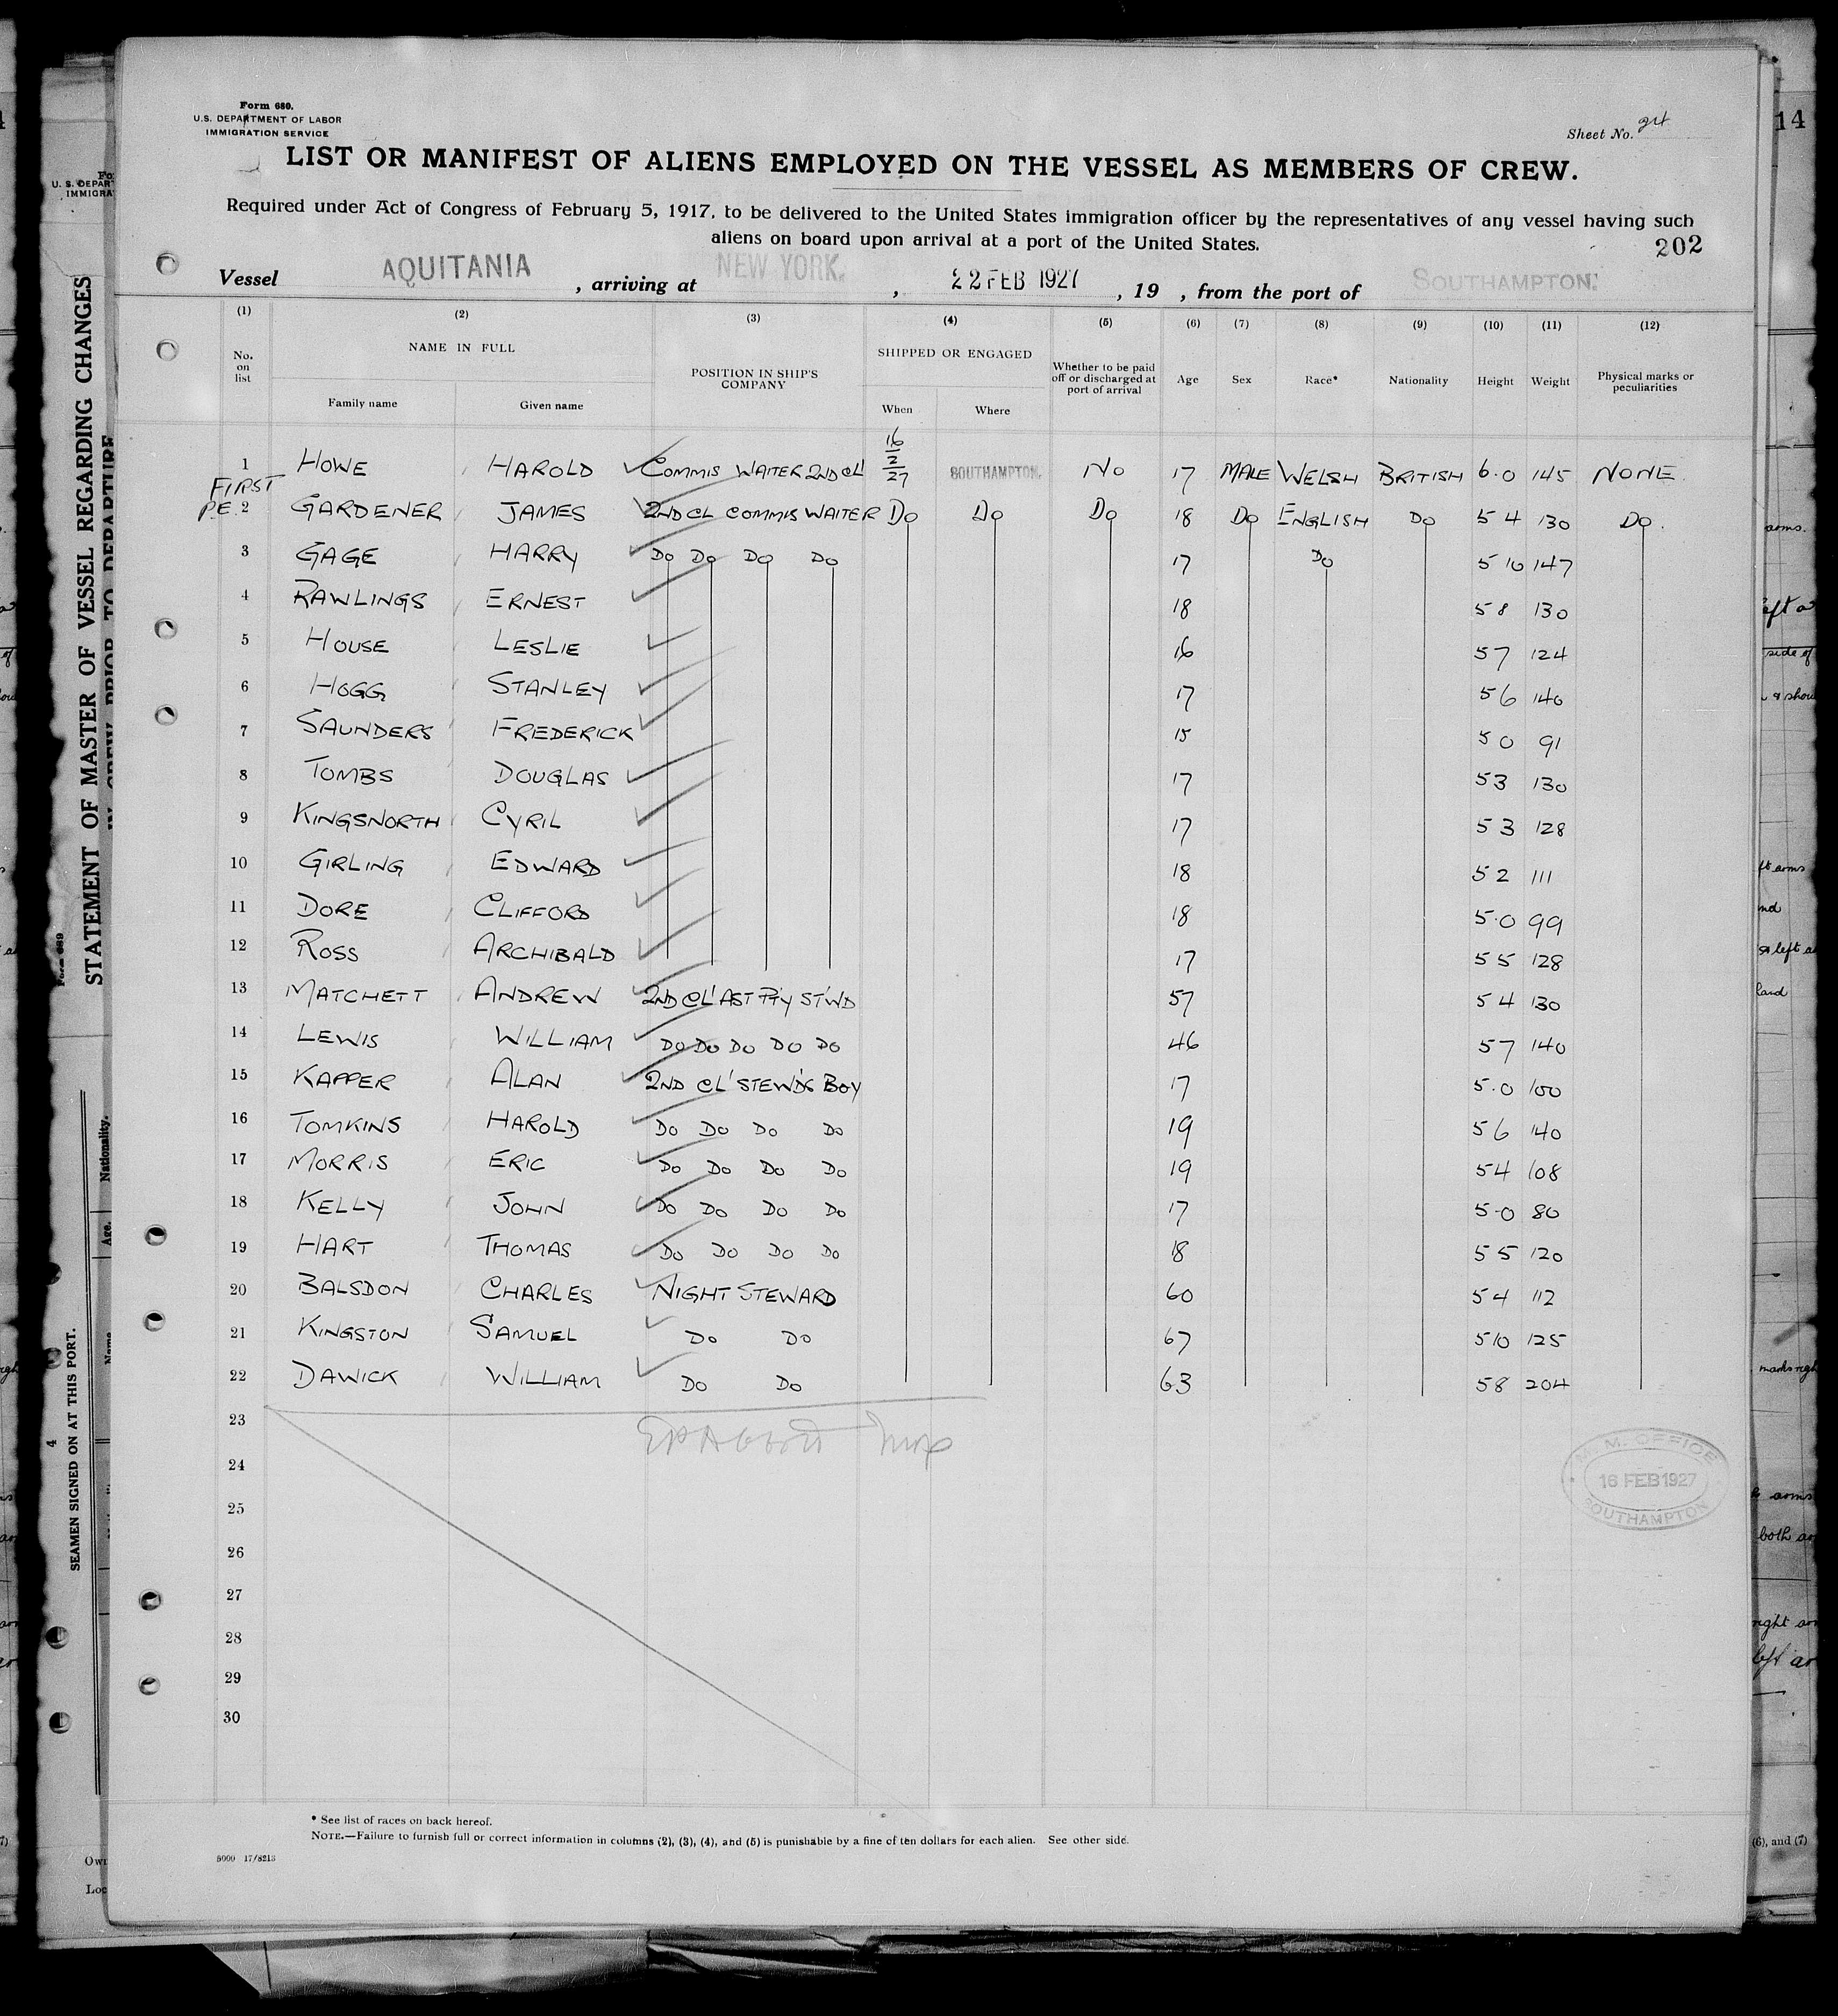 Form 680.
U.S. DEPARTMENT OF LABOR
IMMIGRATION SERVICE
Sheet No. 24
LIST OR MANIFEST OF ALIENS EMPLOYED ON THE VESSEL AS MEMBERS OF CREW.
Required under Act of Congress of February 5, 1917, to be delivered to the United States immigration officer by the representatives of any vessel having such
aliens on board upon arrival at a port of the United States.
202
Vessel AQUITANIA, arriving at NEW YORK, 22 FEB 1927, 19 , from the port of SOUTHAMPTON.
(1) (2) (3) (4) (5) (6) (7) (8) (9) (10) (11) (12)
No. on list NAME IN FULL POSITION IN SHIP'S COMPANY SHIPPED OR ENGAGED Whether to be paid off or discharged at port of arrival Age Sex Race* Nationality Height Weight Physical marks or peculiarities
Family name Given name When Where
1 HOWE HAROLD COMMIS WAITER 2ND CL' 16/2/27 SOUTHAMPTON. NO 17 MALE WELSH BRITISH 6.0 145 NONE
FIRST
P.E. 2 GARDENER JAMES 2ND CL COMMIS WAITER DO DO DO 18 DO ENGLISH DO 5 4 130 DO.
3 GAGE HARRY DO DO DO DO 17 DO 5 10 147
4 RAWLINGS ERNEST 18 5 8 130
5 HOUSE LESLIE 16 5 7 124
6 HOGG STANLEY 17 5 6 140
7 SAUNDERS FREDERICK 15 5 0 91
8 TOMBS DOUGLAS 17 5 3 130
9 KINGSNORTH CYRIL 17 5 3 128
10 GIRLING EDWARD 18 5 2 111
11 DORE CLIFFORD 18 5.0 99
12 ROSS ARCHIBALD 17 5 5 128
13 MATCHETT ANDREW 2ND CL' AST P'TY ST'WD 57 5 4 130
14 LEWIS WILLIAM DO DO DO DO DO 46 5 7 140
15 KAPPER ALAN 2ND CL' STEWDS BOY 17 5.0 100
16 TOMKINS HAROLD DO DO DO DO 19 5 6 140
17 MORRIS ERIC DO DO DO DO 19 5 4 108
18 KELLY JOHN DO DO DO DO 17 5.0 80
19 HART THOMAS DO DO DO DO 18 5 5 120
20 BALSDON CHARLES NIGHT STEWARD 60 5 4 112
21 KINGSTON SAMUEL DO DO 67 5 10 125
22 DAWICK WILLIAM DO DO 63 5 8 204
23
24
25
26
27
28
29
30
M.M. OFFICE
16 FEB 1927
SOUTHAMPTON
* See list of races on back hereof.
NOTE.—Failure to furnish full or correct information in columns (2), (3), (4), and (5) is punishable by a fine of ten dollars for each alien. See other side.
5000 17/8213
STATEMENT OF MASTER OF VESSEL REGARDING CHANGES
IN CREW PRIOR TO DEPARTURE
Form 689
SEAMEN SIGNED ON AT THIS PORT.
4
Nationality.
Age.
Name
14
(6), and (7)